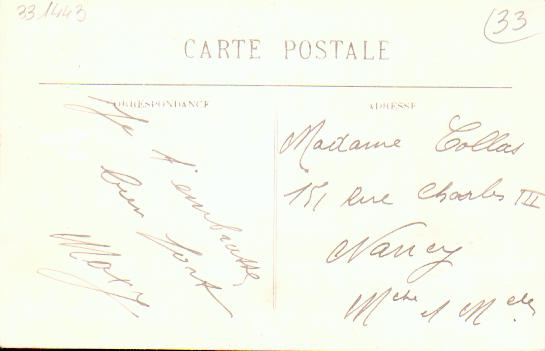 33 1443
33
CARTE POSTALE
CORRESPONDANCE
ADRESSE
Je t'embrasse
bien fort
Mary
Madame Collas
151 Rue Charles III
Nancy
Mthe et Melle